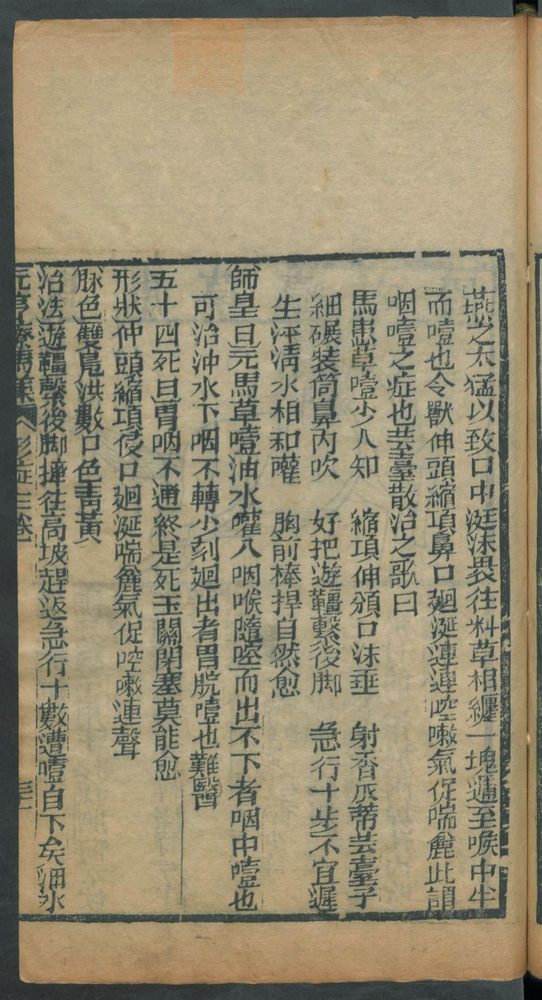 燕之太猛以致口中涎沫畏往料草相纏一塊逓至喉中牛
而噎也令獸伸頭縮項鼻口廻涎連連啌嗽氣促喘麄此謂
咽噎之症也芸薹散治之歌曰
馬患草噎少人知　縮項伸頦口沫垂　射香灰蒂芸薹子
細碾装筒鼻內吹　好把遊韁繫後脚　急行十步不宜遲
生湴清水相和灌　胸前棒捍自然愈
師皇曰元馬草噎油水灌入咽喉隨啌而出不下者咽中噎也
可治沖水下咽不轉少刻廻出者胃脘噎也難醫
五十四死曰胃吶不通終是死玉關閉塞莫能愈
形狀伸頭縮項侵口廻涎喘麄氣促啌嗽連聲
脉色雙鳧洪數口色青黃
治法遊韁繫後脚攆往高坡趕返急行十數遭噎自下矣細水
元亨療馬集　形症三卷